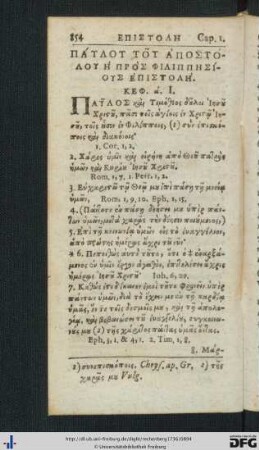 854 ΕΠΙΣΤΟΛΗ Cap. 1.
ΠΑΥΛΟΥ ΤΟΥ ΑΠΟΣΤΟ-
ΛΟΥ Η ΠΡΟΣ ΦΙΛΙΠΠΗΣΙ-
ΟΥΣ ΕΠΙΣΤΟΛΗ.
ΚΕΦ. α. I.
ΠΑῦΛΟΣ καὶ Τιμόθεος δοῦλοι Ἰησοῦ
Χριστοῦ, πᾶσι τοῖς ἁγίοις ἐν Χριστῷ Ἰη-
σοῦ, τοῖς οὖσιν ἐν Φιλίπποις, (1) σὺν ἐπισκό-
ποις καὶ διακόνοις·
1. Cor. 1, 2.
2. Χάρις ὑμῖν καὶ εἰρήνη ἀπὸ Θεοῦ πατρὸς
ἡμῶν καὶ Κυρίου Ἰησοῦ Χριστοῦ.
Rom. 1, 7. 1. Petr. 1, 2.
3. Εὐχαριστῶ τῷ Θεῷ μου ἐπὶ πάσῃ τῇ μνείᾳ
ὑμῶν, Rom. 1, 9. 10. Eph. 1, 15.
4. (Πάντοτε ἐν πάσῃ δεήσει μου ὑπὲρ πάν-
των ὑμῶν, μετὰ χαρᾶς τὴν δέησιν ποιούμενος,)
5. Ἐπὶ τῇ κοινωνίᾳ ὑμῶν εἰς τὸ εὐαγγέλιον,
ἀπὸ πρώτης ἡμέρας ἄχρι τοῦ νῦν·
6. Πεποιθὼς αὐτὸ τοῦτο, ὅτι ὁ ἐναρξά-
μενος ἐν ὑμῖν ἔργον ἀγαθὸν, ἐπιτελέσει ἄχρις
ἡμέρας Ἰησοῦ Χριστοῦ· Joh. 6, 29.
7. Καθώς ἐστι δίκαιον ἐμοὶ τοῦτο φρονεῖν ὑπὲρ
πάντων ὑμῶν, διὰ τὸ ἔχειν με ἐν τῇ καρδίᾳ
ὑμᾶς, ἔν τε τοῖς δεσμοῖς μου, καὶ τῇ ἀπολο-
γίᾳ, καὶ βεβαιώσει τοῦ εὐαγγελίου, συγκοινω-
νούς μου (2) τῆς χάριτος πάντας ὑμᾶς ὄντας.
Eph. 3, 1. & 4, 1. 2. Tim. 1, 8.
8. Μάρ-
1) συνεπισκόποις, Chrys. ap. Gr. 2) τῆς
χαρᾶς μου Vulg.
http://dl.ub.uni-freiburg.de/diglit/rechenberg1736/0894
© Universitätsbibliothek Freiburg
gefördert durch die
DFG